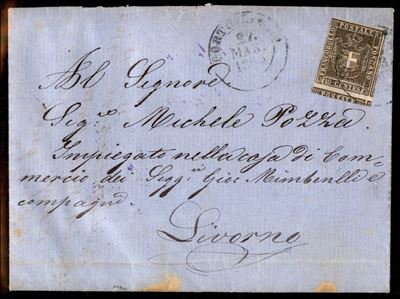 PORTO
27
MAR
FRANCOBOLLO POSTALE TOSCANO
10 CENTES
Al Signore
Sig.e Michele Pozza.
Impiegato nella casa di Com=
mercio dei Sigg.ri Gior Mimbelli e
compagni.
Livorno